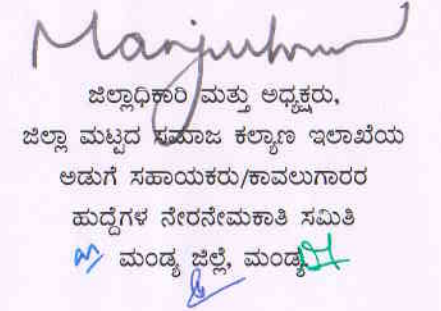 ಜಿಲ್ಲಾಧಿಕಾರಿ ಮತ್ತು ಅಧ್ಯಕ್ಷರು,
ಜಿಲ್ಲಾ ಮಟ್ಟದ ಸಮಾಜ ಕಲ್ಯಾಣ ಇಲಾಖೆಯ
ಅಡುಗೆ ಸಹಾಯಕರು/ಕಾವಲುಗಾರರ
ಹುದ್ದೆಗಳ ನೇರನೇಮಕಾತಿ ಸಮಿತಿ
ಮಂಡ್ಯ ಜಿಲ್ಲೆ, ಮಂಡ್ಯ